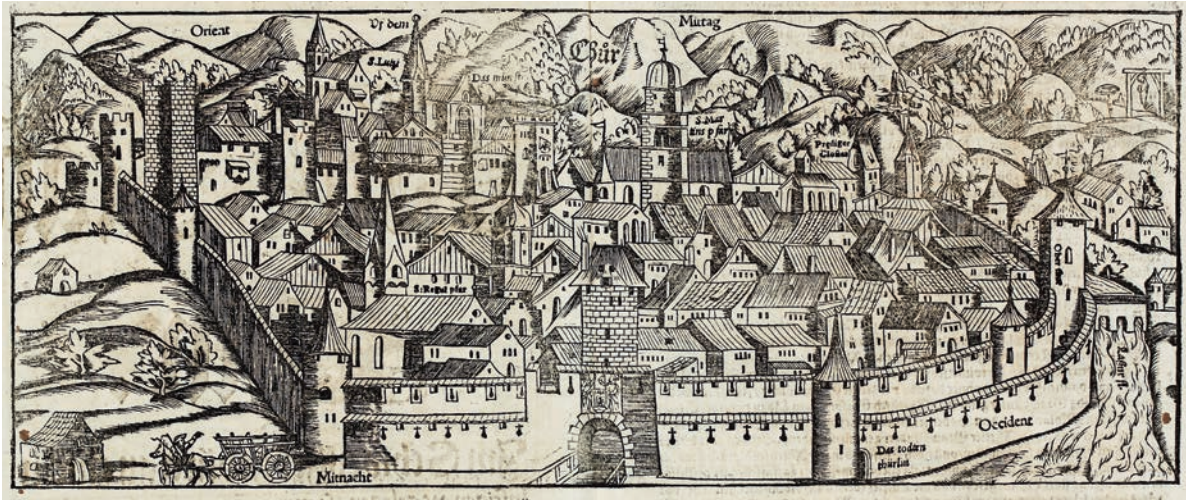 Orient
Vf dem
hof
Mittag
Chůr
S. Lutzi
Das münster
S. Mar
tins pfar
Prediger
Closter
S. Regel pfar
Ober thor
Occident
Das todten
thürlin
Mitnacht